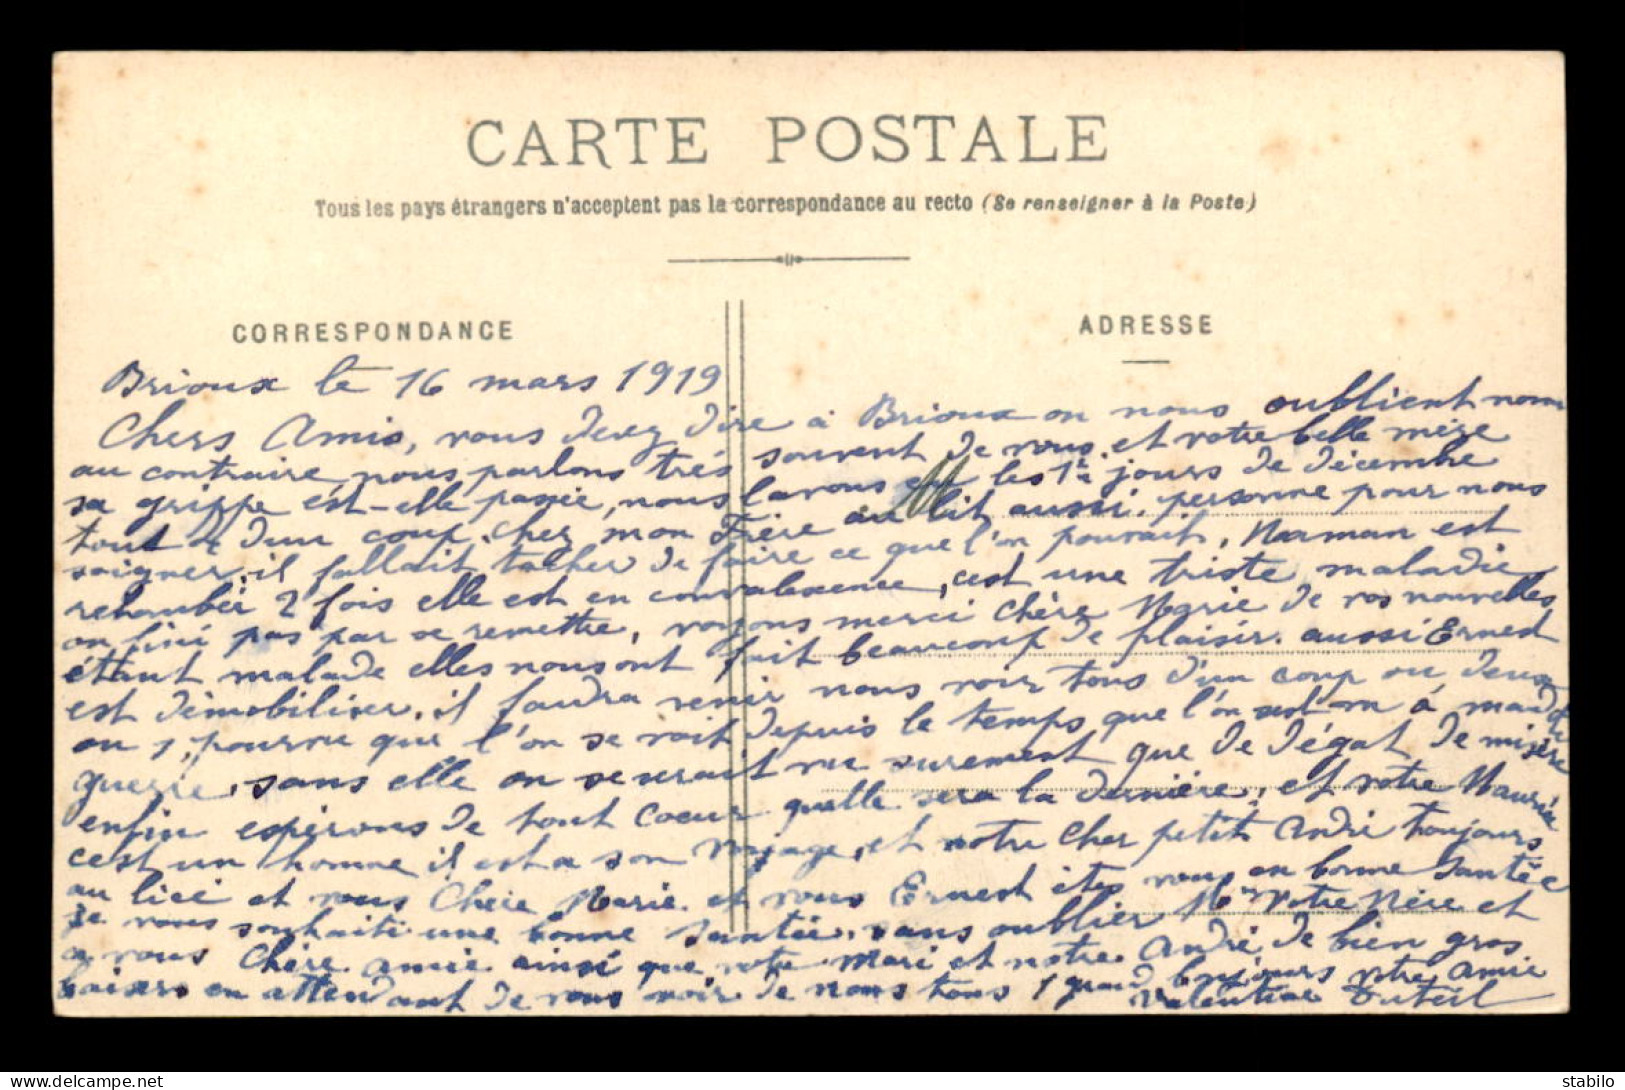 CARTE POSTALE
Tous les pays étrangers n'acceptent pas la correspondance au recto (Se renseigner à la Poste)
CORRESPONDANCE
ADRESSE
Brioux le 16 mars 1919
Chers Amis, vous devez dire a Brioux on nous oublient non
au contraire nous parlons très souvent de vous, et votre belle mère
sa grippe est-elle passée, nous lavons eut les 1er jours de décembre
tout d'un coup. chez mon Frère au lit aussi. personne pour nous
soigner, il fallait tacher de faire ce que l'on pouvait, Maman est
retombée 2 fois elle est en convalescence, cest une triste maladie
on fini pas par se remettre, voyons merci chère Marie de vos nouvelles
étant malade elles nous ont fait beaucoup de plaisir. aussi Ernest
est démobiliser, il faudra venir nous voir tous d'un coup ou deux
ou 1, pourvu que l'on se voit depuis le temps que l'on est on à maudit
guerre, sans elle on se serait vu surement que de dégat de misère
enfin espérons de tout coeur quelle sera la dernière, et votre Maurice
cest un homme il est a son voyage, et notre cher petit André toujours
au licé et vous Chère Marie et vous Ernest êtes vous en bonne santée
Je vous souhaite une bonne santée, sans oublier Mme Votre Mère et
a vous Chère amie ainsi que votre Mari et notre André de bien gros
baisers en attendant de vous voir de nous tous 1 grand bonjours votre amie
Valentine Duteil
stabilo
delcampe.net